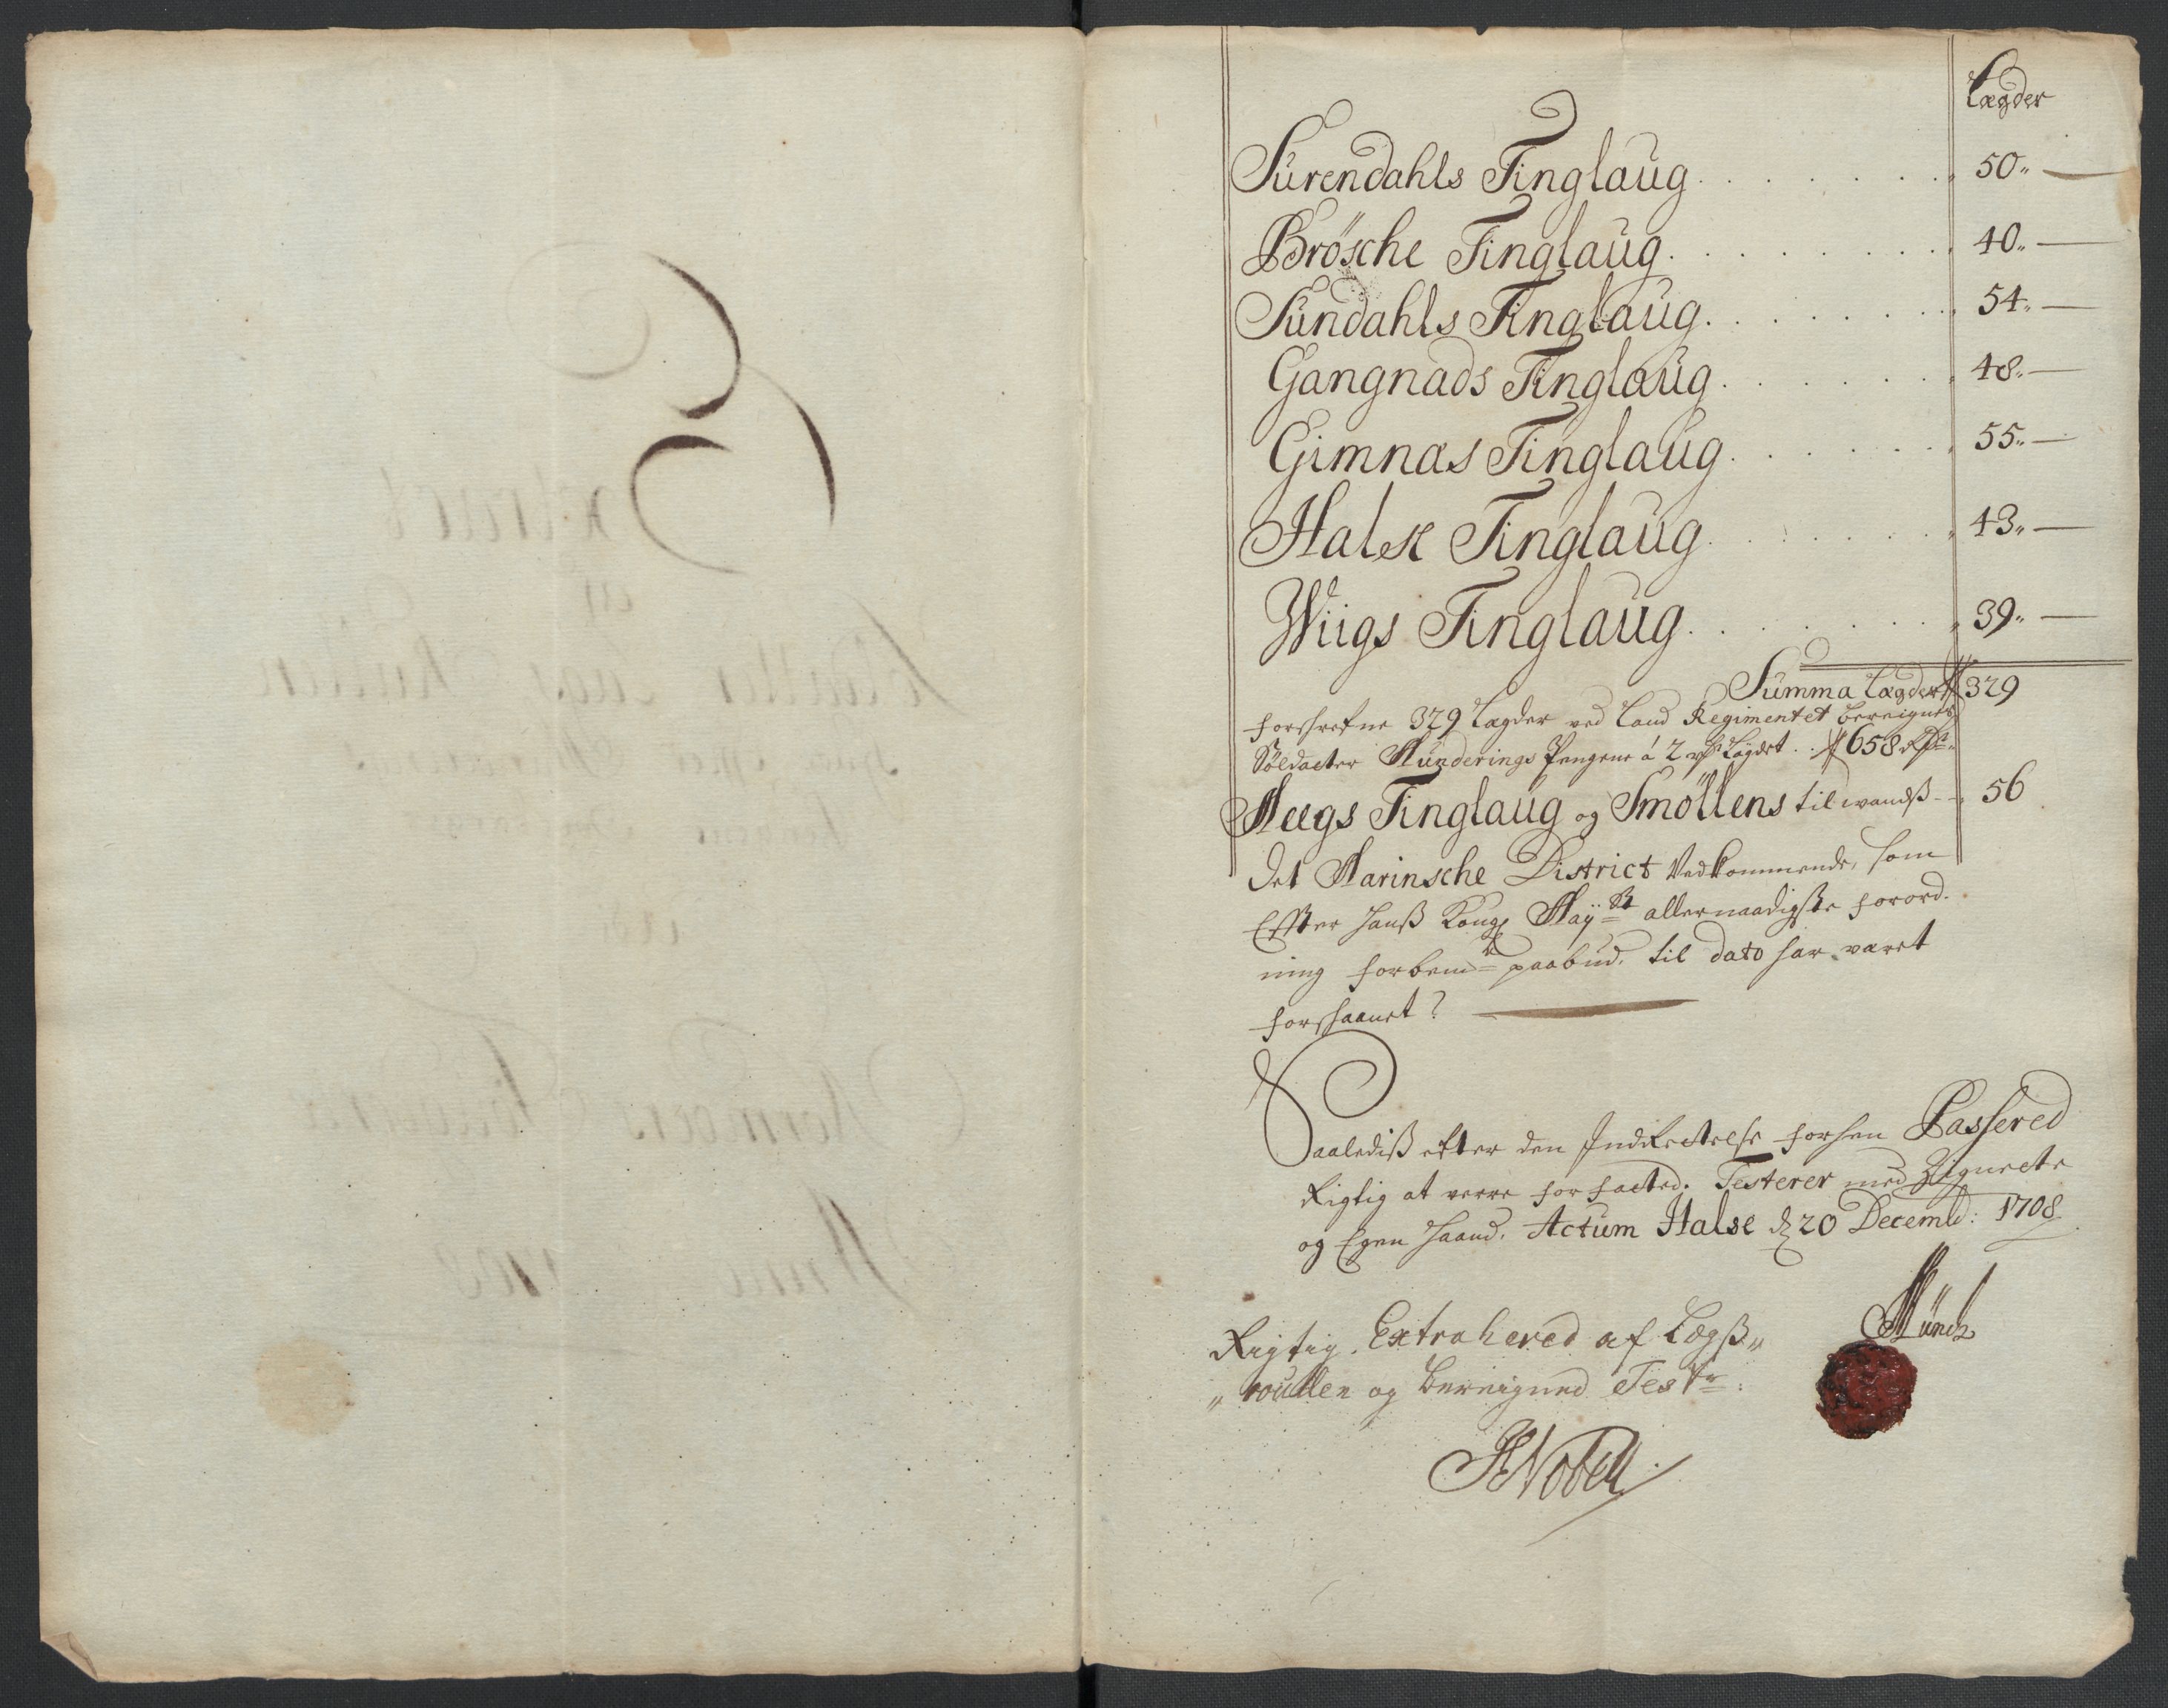 Lægder
Sürendahls Tinglaüg . . . . . . . . 50 „ —
Brösche Tinglaüg . . . . . . . . . 40 „ —
Sündahls Tinglaüg . . . . . . . . 54 „ —
Gangnads Tinglaüg . . . . . . . 48 „ —
Gimnæs Tinglaüg . . . . . . . 55 „ —
Halse Tinglaüg . . . . . . . . 43 „ —
Wiigs Tinglaug . . . . . . . . 39 „ —
Summa Lægder 329
forschrefne 329 Lægder ved Land Regimentet bereignes
Söldater Münderings Pengene á 2 Lægdet . . 658
Meegs Tinglaüg og Smöllens til 56
Det Marinsche District Vedkommende, som
Effter Hanß Kongl Mayst allernaadigste forord-
ning forbemte paabud, til dato har været
forschaanet?
Saalediß efter den Indrettelse forhen Passered
Rigtig at verre forfatted. Testerer med Zignete
og Egen Haand. Actum Halse d 20 Decembr: 1708
Münch
Rigtig Extrahered af Lægß„
„roullen og bereigned Testr: